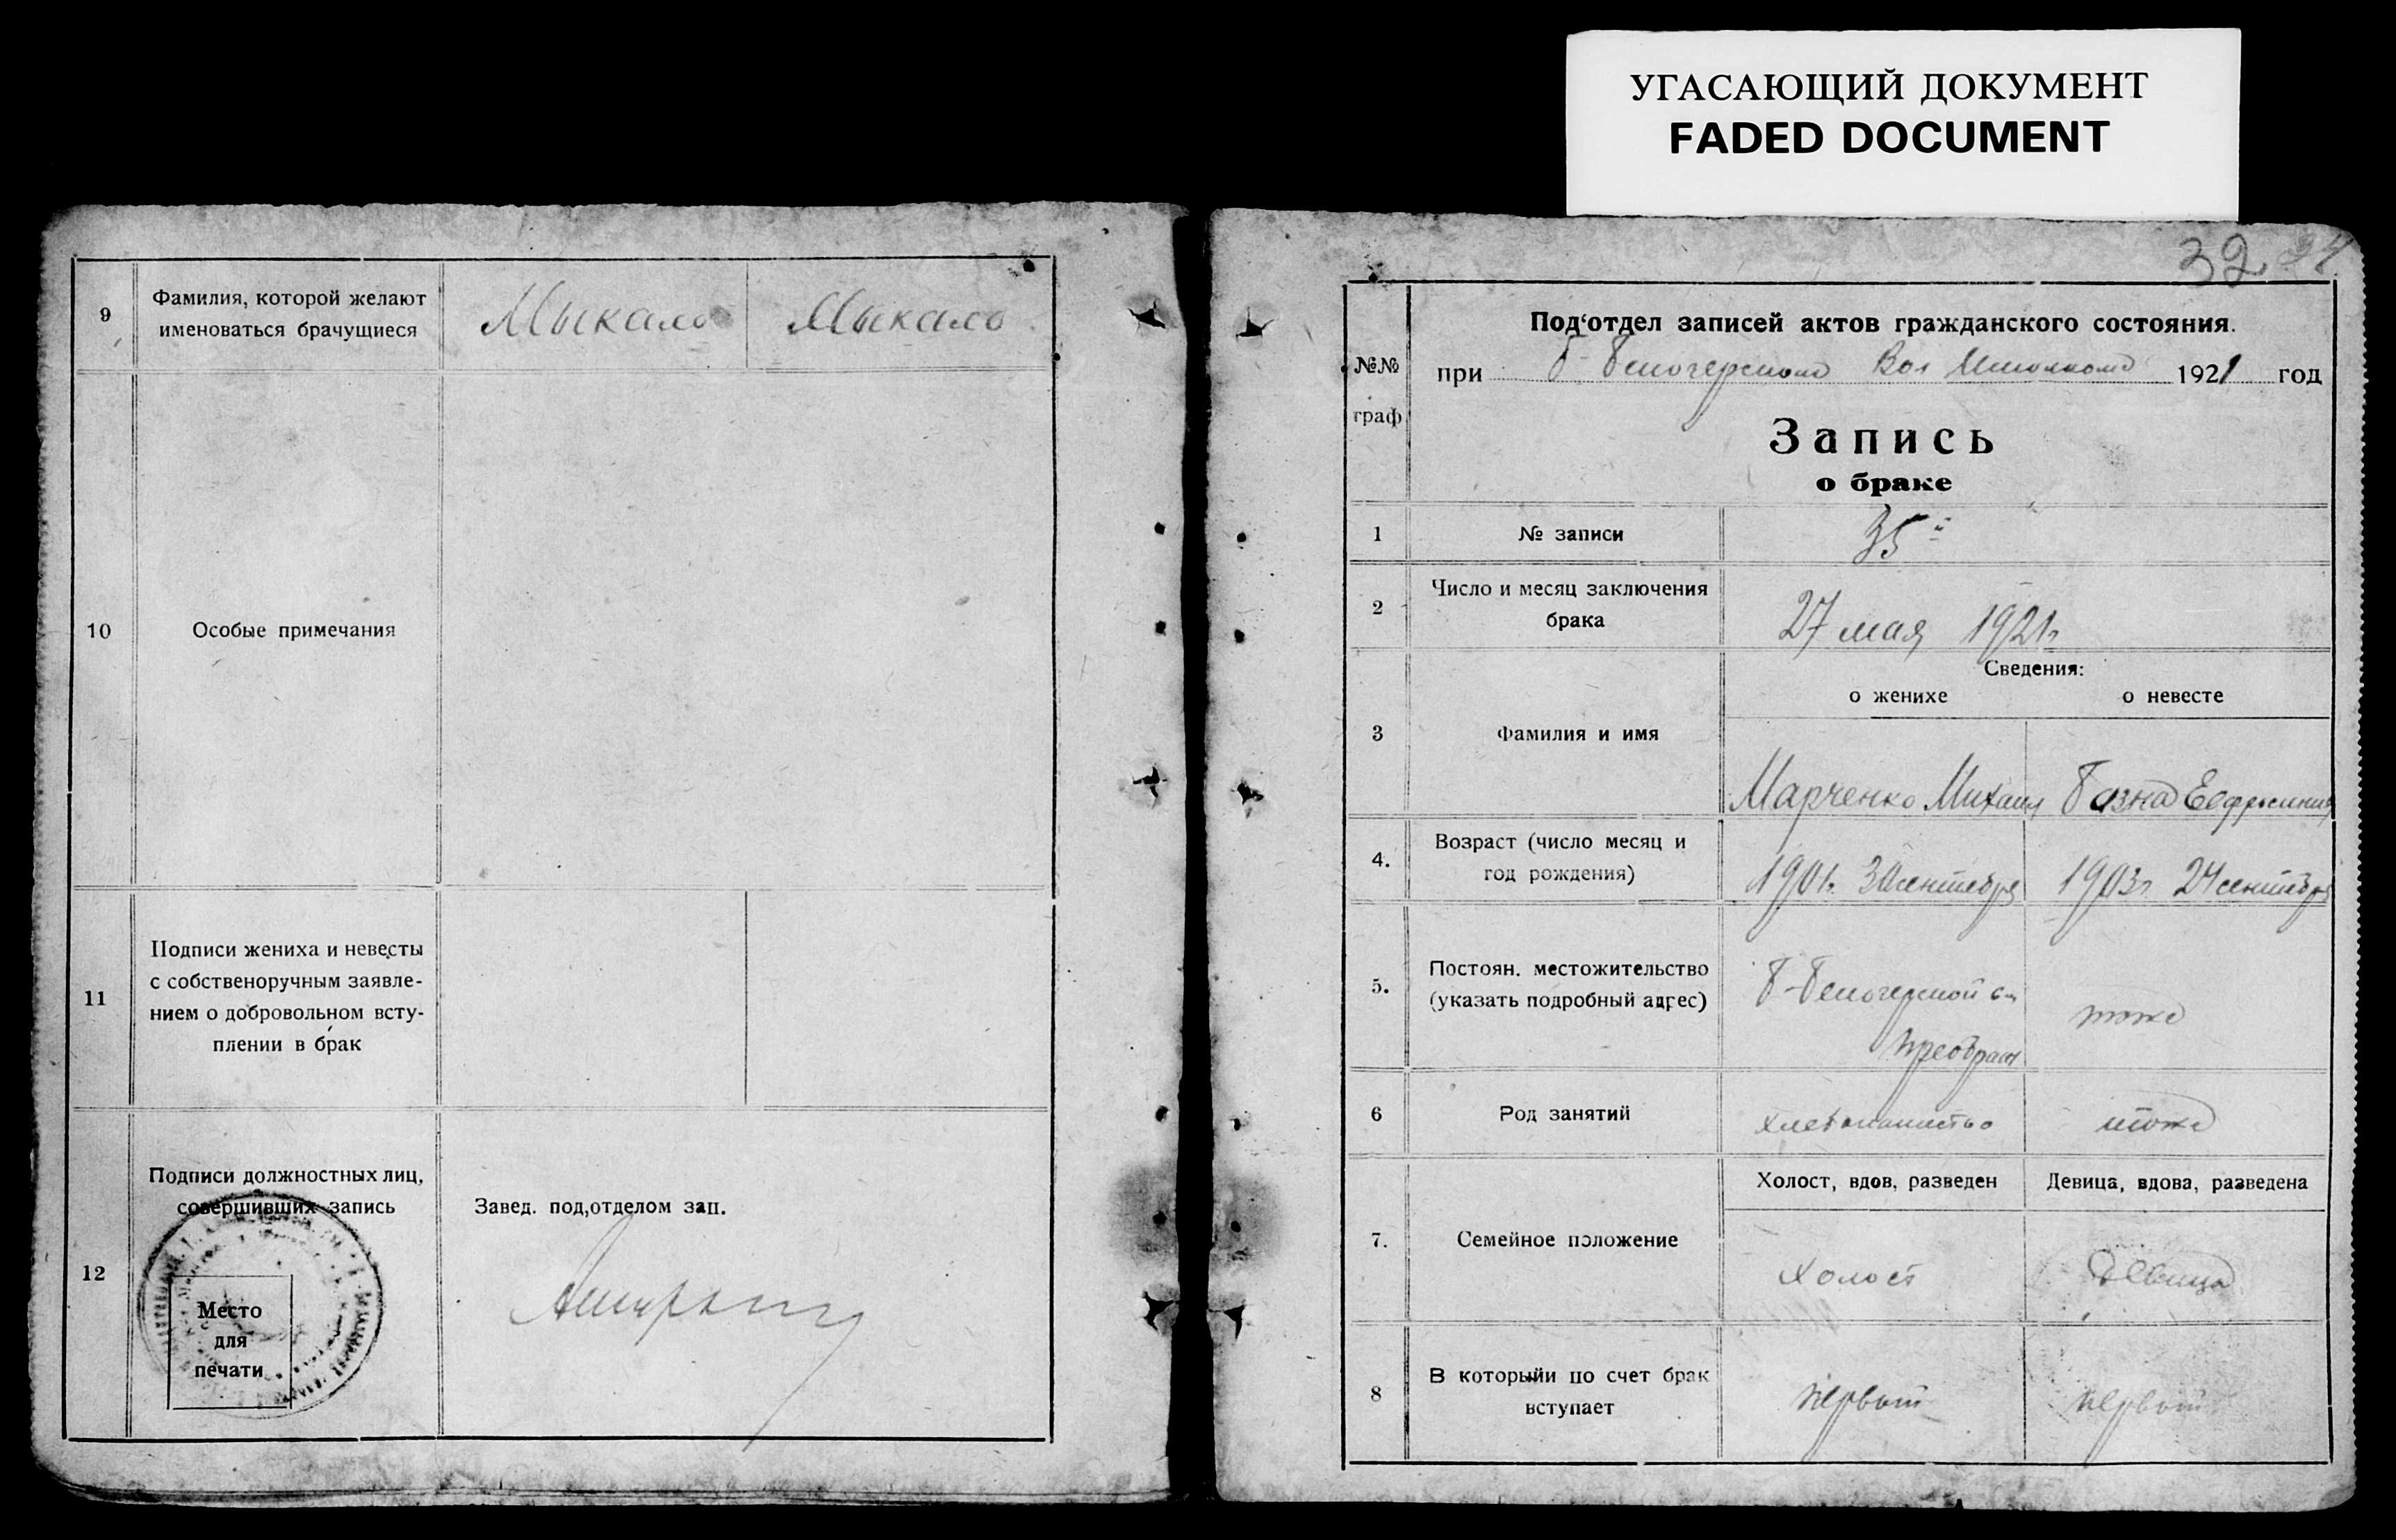 УГАСАЮЩИЙ ДОКУМЕНТ
FADED DOCUMENT
9
Фамилия, которой желают
именоваться брачущиеся
Мыкало
Мыкало
10
Особые примечания
11
Подписи жениха и невесты
с собственоручным заявле-
нием о добровольном всту-
плении в брак
12
Подписи должностных лиц,
совершивших запись
Место
для
печати
Завед. под,отделом зап.
32
№№
граф
Под‘отдел записей актов гражданского состояния.
при Б-Белочерском Вол Исполкоме 1921 год
Запись
о браке
1
№ записи
35
2
Число и месяц заключения
брака
27 мая 1921г
3
Фамилия и имя
Сведения:
о женихе
о невесте
Марченко Михаил
Базна Ефросиния
4.
Возраст (число месяц и
год рождения)
1901г. 30 сентября
1903г 24 сентября
5.
Постоян. местожительство
(указать подробный адрес)
Преображ
тоже
6
Род занятий
хлебопашество
тоже
7.
Семейное положение
Холост, вдов, разведен
Девица, вдова, разведена
Холост
Девица
8
В которыйи по счет брак
вступает
первый
первый